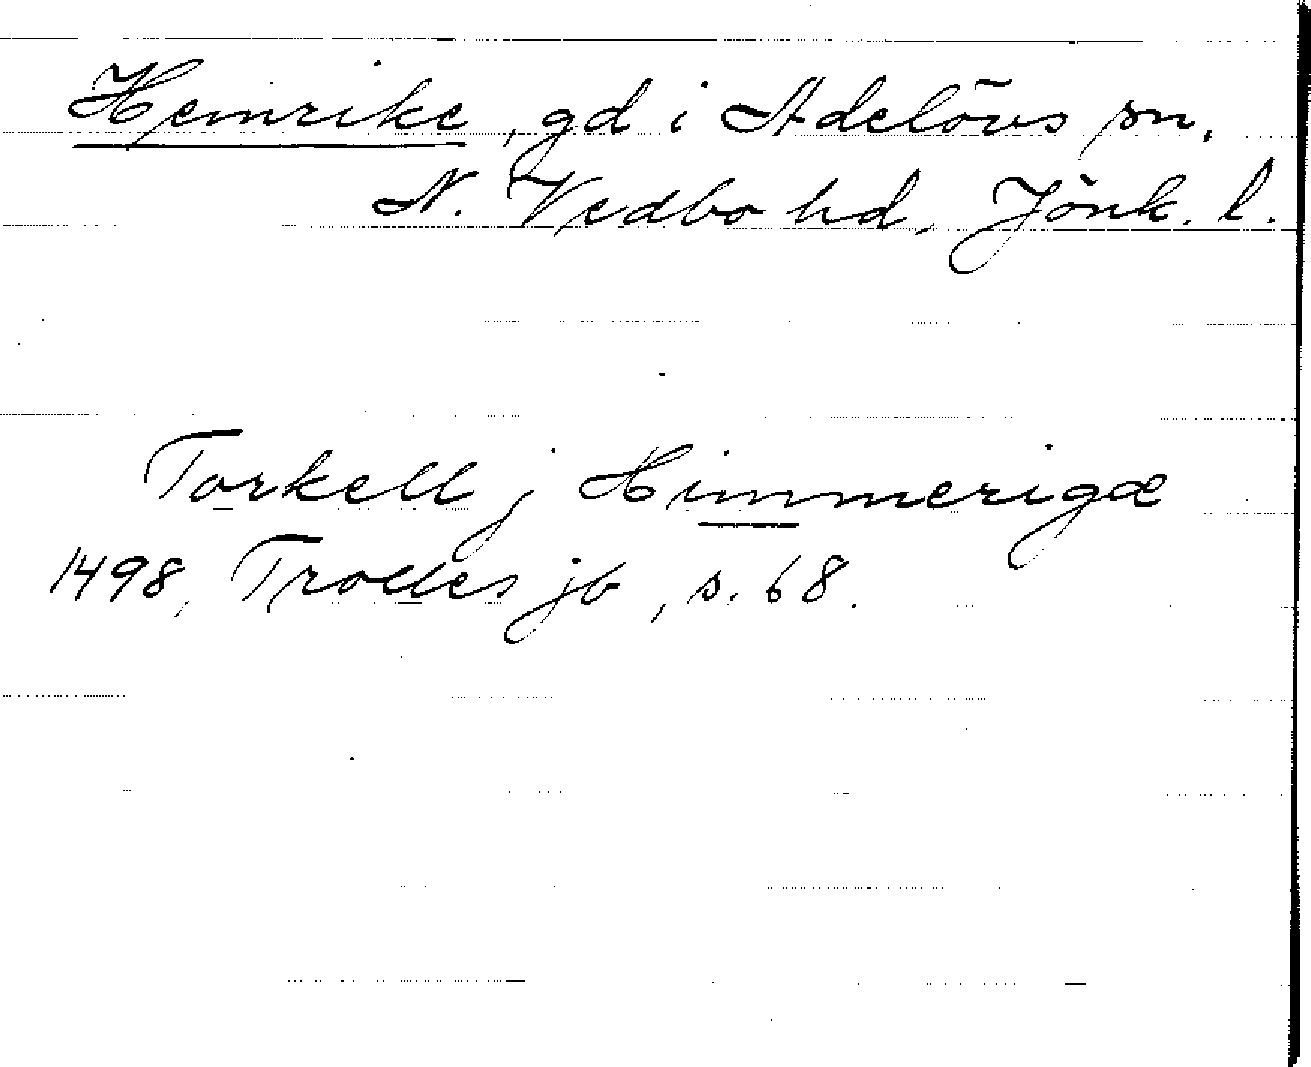 Hemrike, gd i Adelövs sn,
N. Vedbo hd, Jönk. l.
Torkell j Himmerigæ
1498, Trolles jb, s. 68.